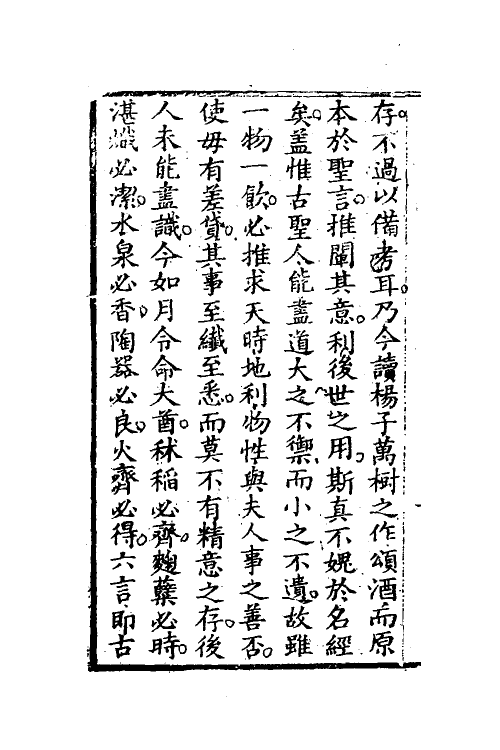 存。不過以備考耳。乃今讀楊子萬樹之作頌酒而原
本於聖言。推闡其意。利後世之用。斯真不媿於名經
矣。蓋惟古聖人能盡道大之不禦。而小之不遺。故雖
一物一飲。必推求天時地利物性與夫人事之善否。
使毋有差貸。其事至纖至悉。而莫不有精意之存。後
人未能盡識。今如月令命大酋秫稻必齊。麴櫱必時。
湛熾必潔。水泉必香。陶器必良。火齊必得。六言即古